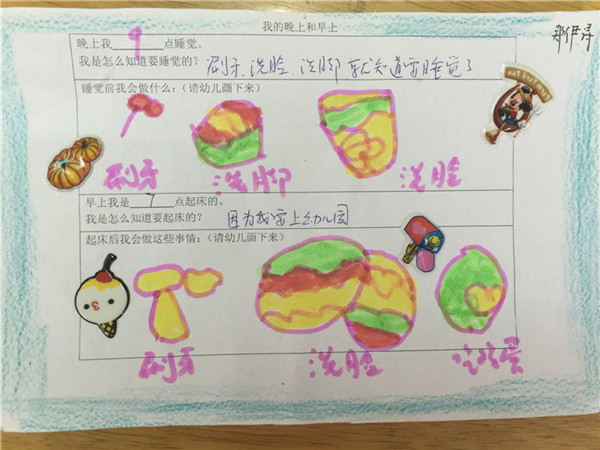 我的晚上和早上
晚上我 9 点睡觉。
我是怎么知道要睡觉的？ 刷牙 洗脸 洗脚 就知道需睡觉了
睡觉前我会做什么：（请幼儿画下来）
刷牙 洗脚 洗脸
早上我是 7 点起床的。
我是怎么知道要起床的？ 因为我需上幼儿园
起床后我会做这些事情：（请幼儿画下来）
刷牙 洗脸